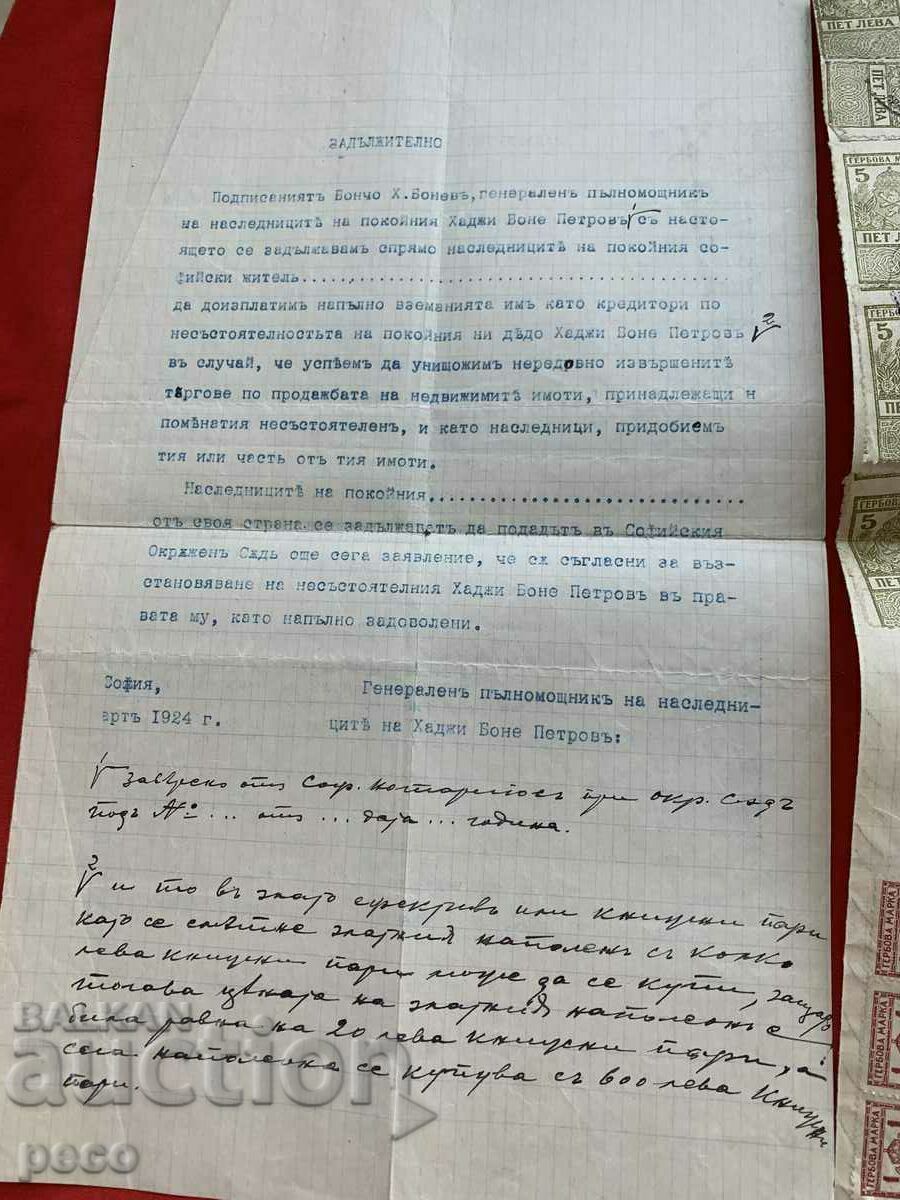 ЗАДЪЛЖИТЕЛНО
Подписаниятъ Бончо Х.Боневъ, генераленъ пълномощникъ
на наследницитѣ на покойния Хаджи Боне Петровъ 1 съ насто-
ящето се задължавамъ спрямо наследницитѣ на покойния со-
фийски житель........................................
да доизплатимъ напълно вземанията имъ като кредитори по
несъстоятелностьта на покойния ни дѣдо Хаджи Боне Петровъ 2
въ случай, че успѣемъ да унищожимъ нередовно извършенитѣ
търгове по продажбата на недвижимитѣ имоти, принадлежащи н
поменатия несъстоятеленъ, и като наследници, придобиемъ
тия или часть отъ тия имоти.
Наследницитѣ на покойния...............................
отъ своя страна се задължаватъ да подадътъ въ Софийския
Окрѫженъ Сѫдъ още сега заявление, че сѫ съгласни за въз-
становяване на несъстоятелния Хаджи Боне Петровъ въ пра-
вата му, като напълно задоволени.
София,
артъ 1924 г.
Генераленъ пълномощникъ на наследни-
цитѣ на Хаджи Боне Петровъ:
1 отъ Соф. нотариусъ при окр. сѫдъ
подъ № ... отъ ... дата ... година.
2 и то въ злато ефективъ или книжни пари
като се смѣтне златния наполеонъ съ колко
лева книжни пари може да се купи, защото
тогава цѣната на златния наполеонъ е
била равна на 20 лева книжни пари, а
сега наполеона се купува съ 600 лева книжни
пари.
ПЕТ ЛЕВА
ПЕТ ЛЕВА
ГЕРБОВА М
5
ПЕТ ЛЕВА
ГЕРБОВ
5
ПЕ
5
ПЕТ
ГЕРБОВА МАРКА
ГЕРБОВА МАРКА
1
ГЕРБОВА МАРКА
1
BALKAN
auction
peco